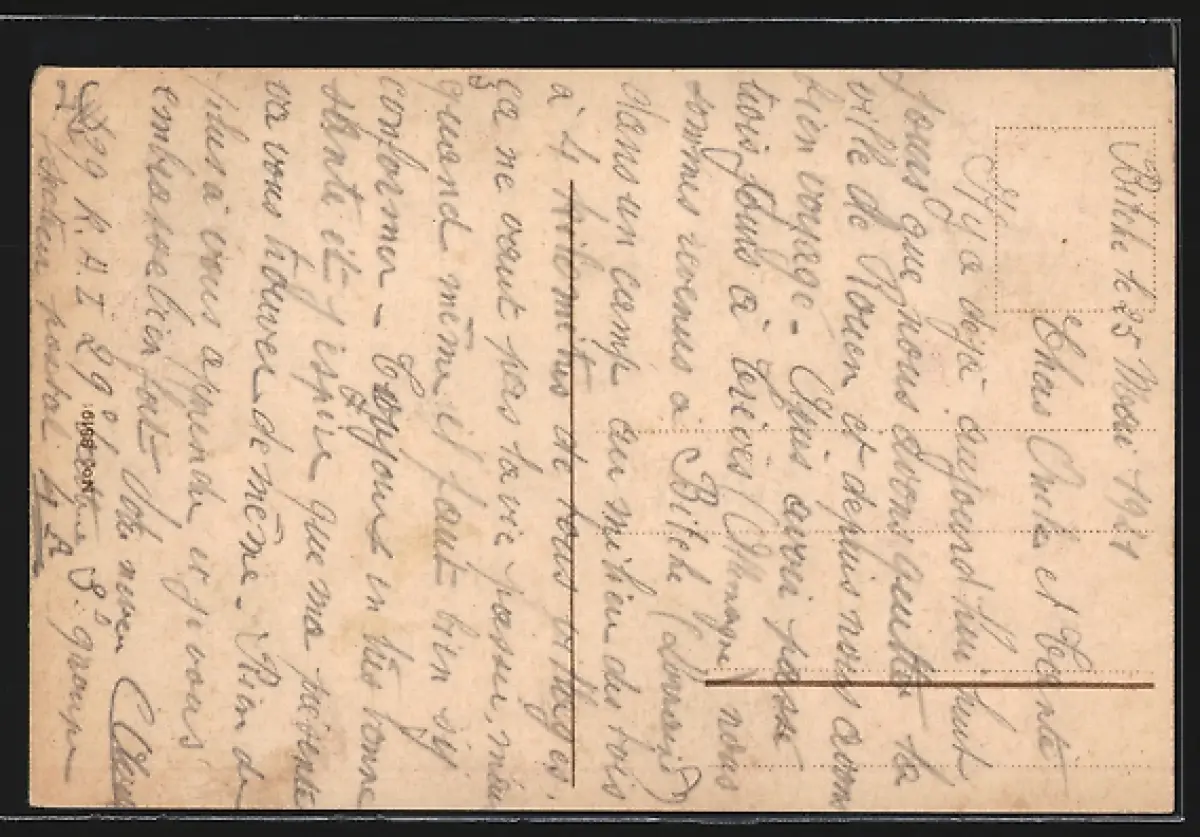 Bitche le 25 Mai 1921
Chers Oncle et Tante
Il y a déjà aujourd'hui huit
jours que nous avons quitté la
ville de Rouen et depuis nous avons
bien voyagé - Après avoir passé
trois jours à Trèves (Allemagne) nous
sommes revenus à Bitche (Lorraine)
dans un camp au milieu des bois
à 4 kilomètres de tous villages.
Ça ne vaut pas la vie passée, mais
quand même il faut bien s'y
conformer - Toujours en très bonne
santé et j'espère que ma présente
va vous trouver de même - Rien de
plus à vous apprendre et je vous
embrasse bien fort Votre neveu
99 R.A.L 29e batterie 8e groupe
Secteur postal 4 A
No 8519